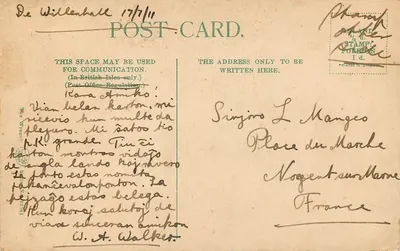 De Willenhall 17/7/11
POST CARD.
Stamp
other
side
STAMP
1 d.
THIS SPACE MAY BE USED
FOR COMMUNICATION.
(In British Isles only.)
(Post Office Regulation)
THE ADDRESS ONLY TO BE
WRITTEN HERE.
Kara Amiko!
Vian belan karton, mi
ricevis kun multe da
plezuro. Mi ŝatas tia
p.k. grande Tiu ĉi
karton montras vidaĵo
de anglo lando
La ponto estas nomita
La
pejzaĝo estas belega.
Kun koraj salutoj de
via sinceran amikon
W. A. Walker.
Sinjoro L Mangeo
Place du Marche
Nogent sur Marne
France